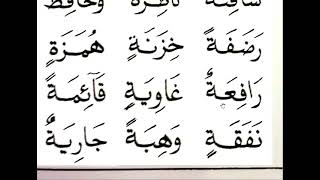 رَضَفَةً خِزَنَةٍ هُمَزَةٍ
رَافِعَةٌ غَاوِيَةٍ قَآئِمَةً
نَفَقَةٍ وَهِبَةً جَارِيَةٌ